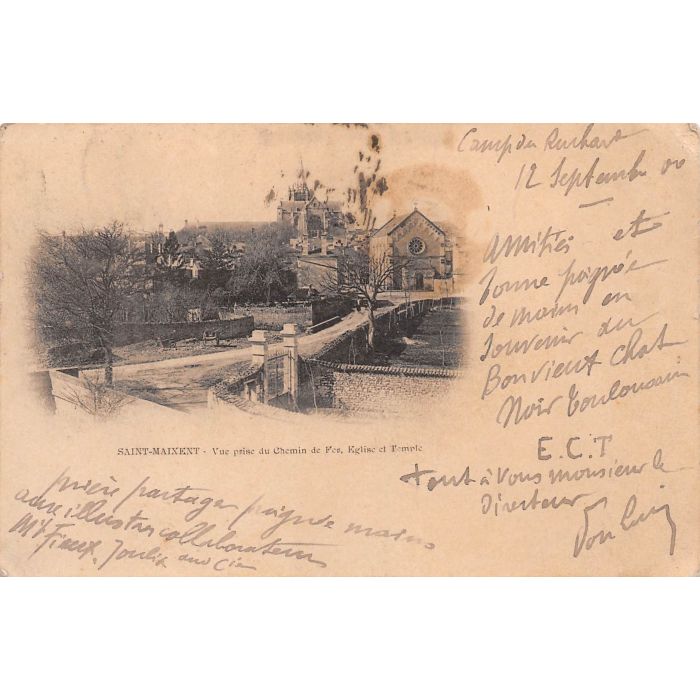 Camp du Ruchard
12 Septembre 00
Amitiés et
bonne poignée
de mains en
Souvenir du
Bonvient Chat
Noir Toulousain
E.C.T
tout à Vous monsieur le
Directeur
SAINT-MAIXENT - Vue prise du Chemin de Fer, Eglise et Temple
prière partager poignée mains
avec illustres collaborateurs